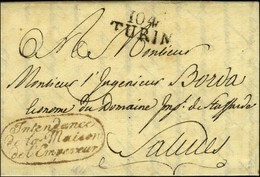 104
TURIN
A Monsieur
Monsieur l'Ingenieur Borda
Econome du Domaine Imp.l de Staffarde
Saluces
Intendance
de la Maison
de l'Empereur